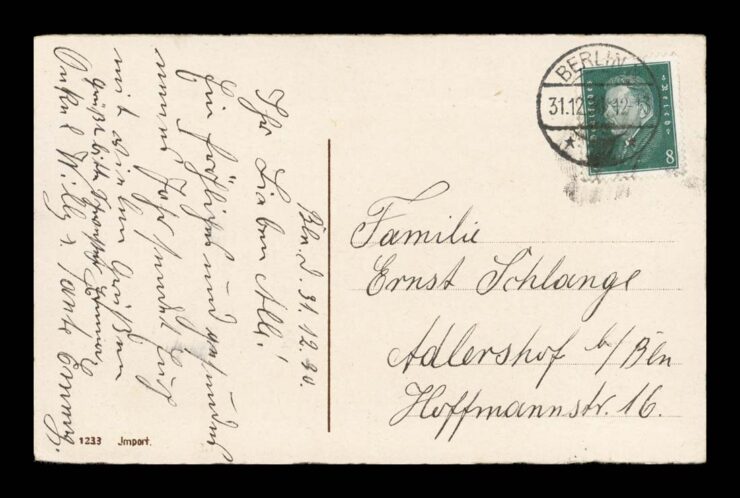 Bln. d. 31.12.30.
Ihr Lieben All!
Ein fröhliches und gesundes
neues Jahr sendet Euch
mit vielen Grüßen
Onkel Willy & Tante Emmy
1233 Import.
BERLIN
31.12
Reich
8
Familie
Ernst Schlange
Adlershof b/Bln
Hoffmannstr. 16.